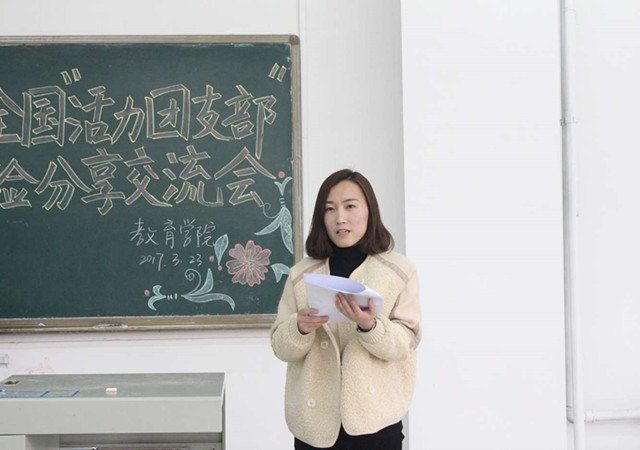 全国“活力团支部”
验分享交流会
教育学院
2017.3.23